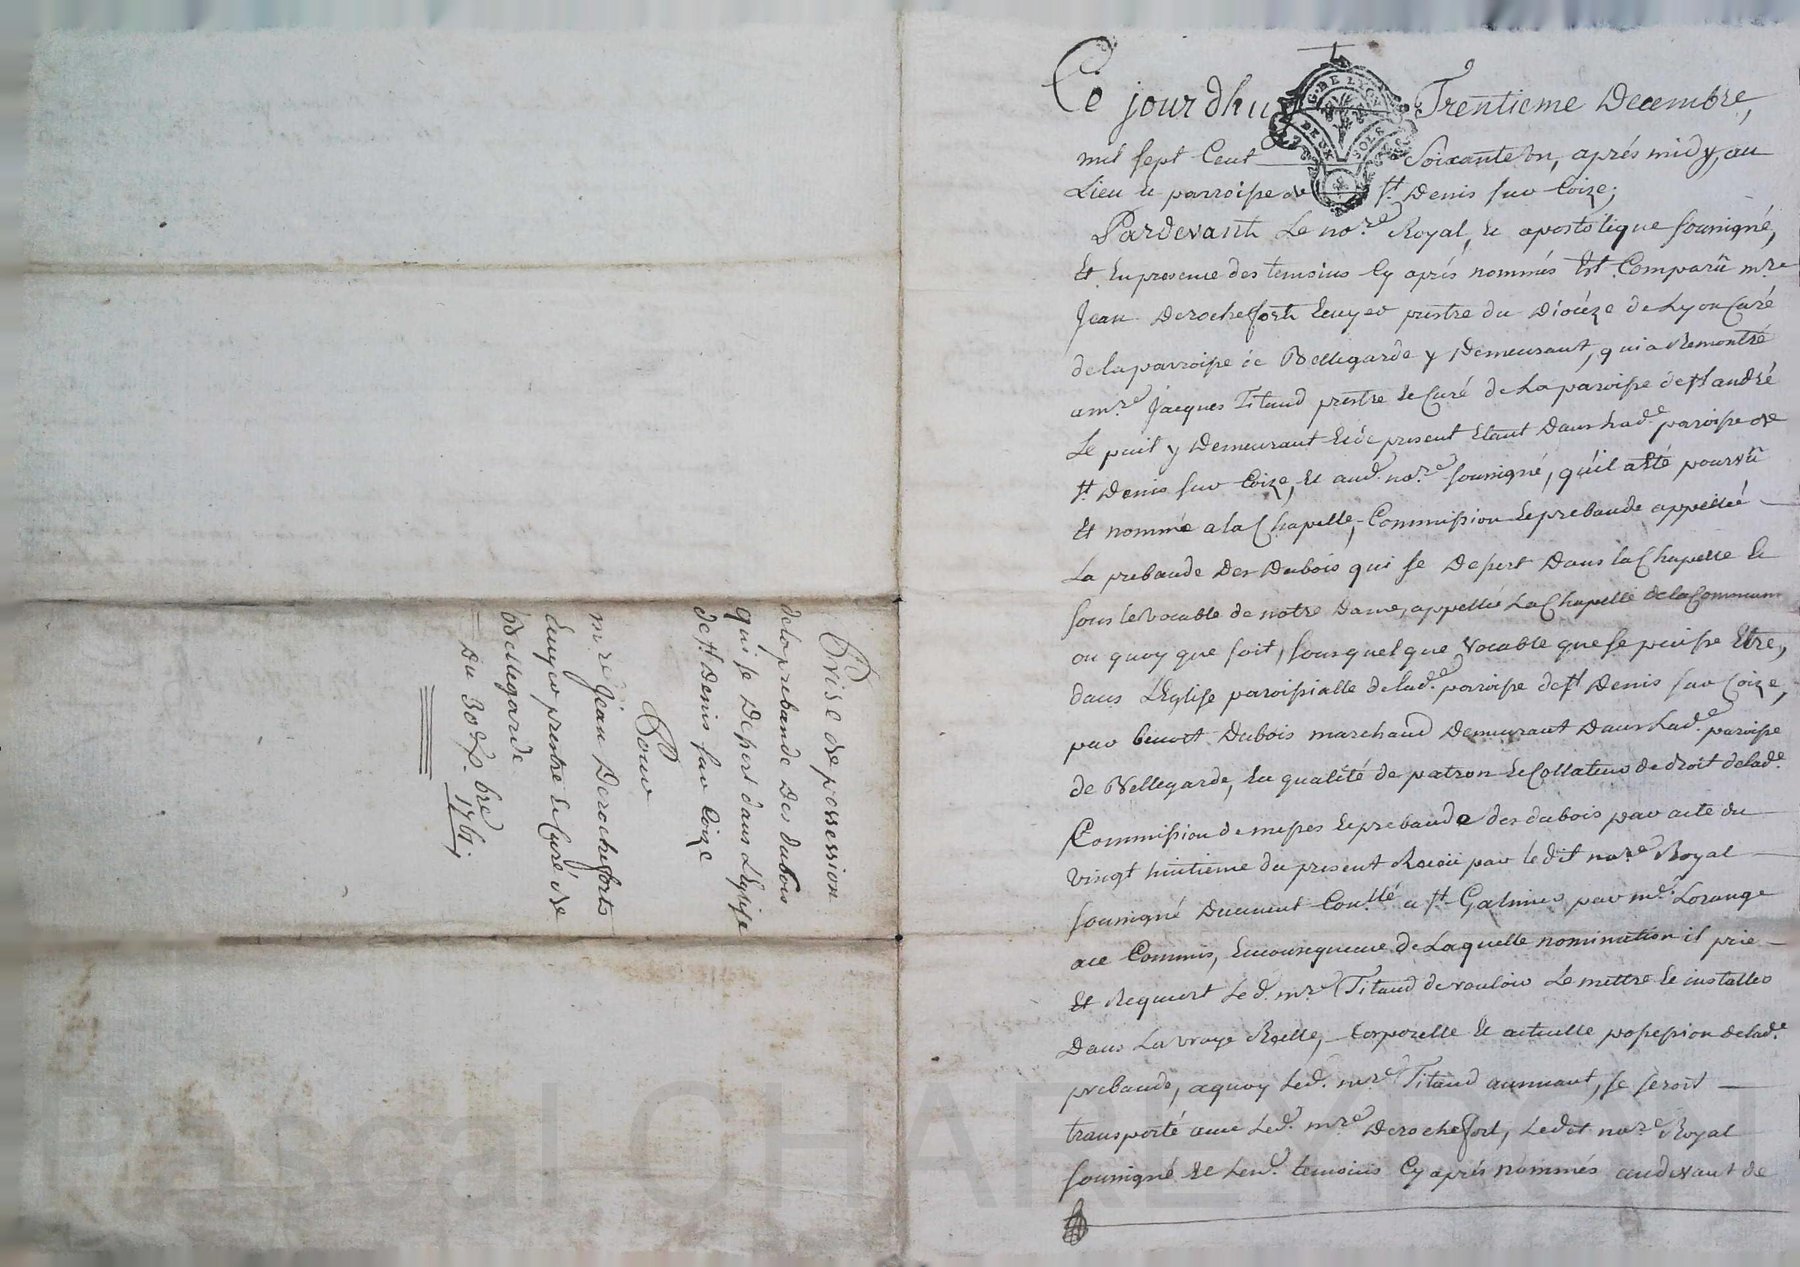 Prise de possession
de la prebande des dubois
qui se Desert dans L'Eglise
de st Denis sur Coize
Pour
mre Jean Derochefort
Ecuyer prestre et Curé de
Bellegarde
Du 30 Xbre
1761.
G. DE LYON
DEUX SOLS
Ce jourdhuy Trentieme Decembre,
mil sept Cent Soixante Un, aprés midy, au
Lieu et parroisse de st Denis sur Coize;
Pardevant Le nore Royal, et apostolique soussigné,
Et En presence des temoins Cy aprés nommés Est Comparû mre
Jean Derochefort Ecuyer prestre du Diocéze de Lyon Curé
de la parroisse de Bellegarde y Demeurant, qui a Remontré
a mre Jacques Titaud prestre et Curé de La paroisse de st andré
Le puit y Demeurant Icy present Etant Dans lade paroisse de
st Denis sur Coize, et aud. nore soussigné, qu'il a Eté pourvû
Et nommé a la Chapelle, Commission et prebande appellée
La prebande Des Dubois qui se Desert Dans la Chapelle et
sous le vocable de notre Dame, appellée La Chapelle de la Commun
ou quoy que soit, sous quelque Vocable que se puisse Etre,
dans L'Eglise paroissialle de lade paroisse de st Denis sur Coize,
par benoit Dubois marchand Demeurant Dans Lade paroisse
de Bellegarde, En qualité de patron et Collateur de droit de lade
Commission de messes et prebande des dubois par acte du
vingt huitieme du present Reçu par le dit nore Royal
soussigné Duement Conllé a st Galmier par mr Lorange
a ce Commis, En consequence de Laquelle nomination il prie
Et Requiert Led. mre Titaud de vouloir Le mettre et installer
Dans La vraye Reelle, Corporelle et actuelle possession de lade
prebande, a quoy Led. mre Titaud, se seroit
transporté avec Led. mre Derochefort, Ledit nore Royal
soussigné et temoins Cy aprés nommés au devant de
Pascal CHAREYRON